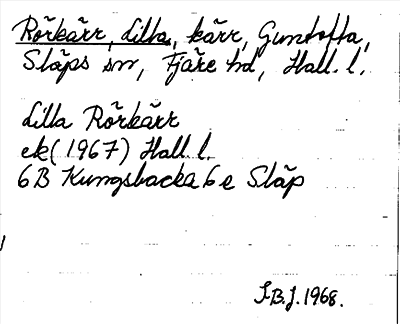 Rörkärr, Lilla, kärr, Guntofta,
Släps sn, Fjäre hd, Hall. l.
Lilla Rörkärr
ek (1967) Hall l.
6B Kungsbacka 6e Släp
S.B.J. 1968.